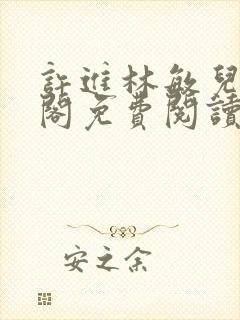 許進林敏兒
閣免費閱讀
安之余